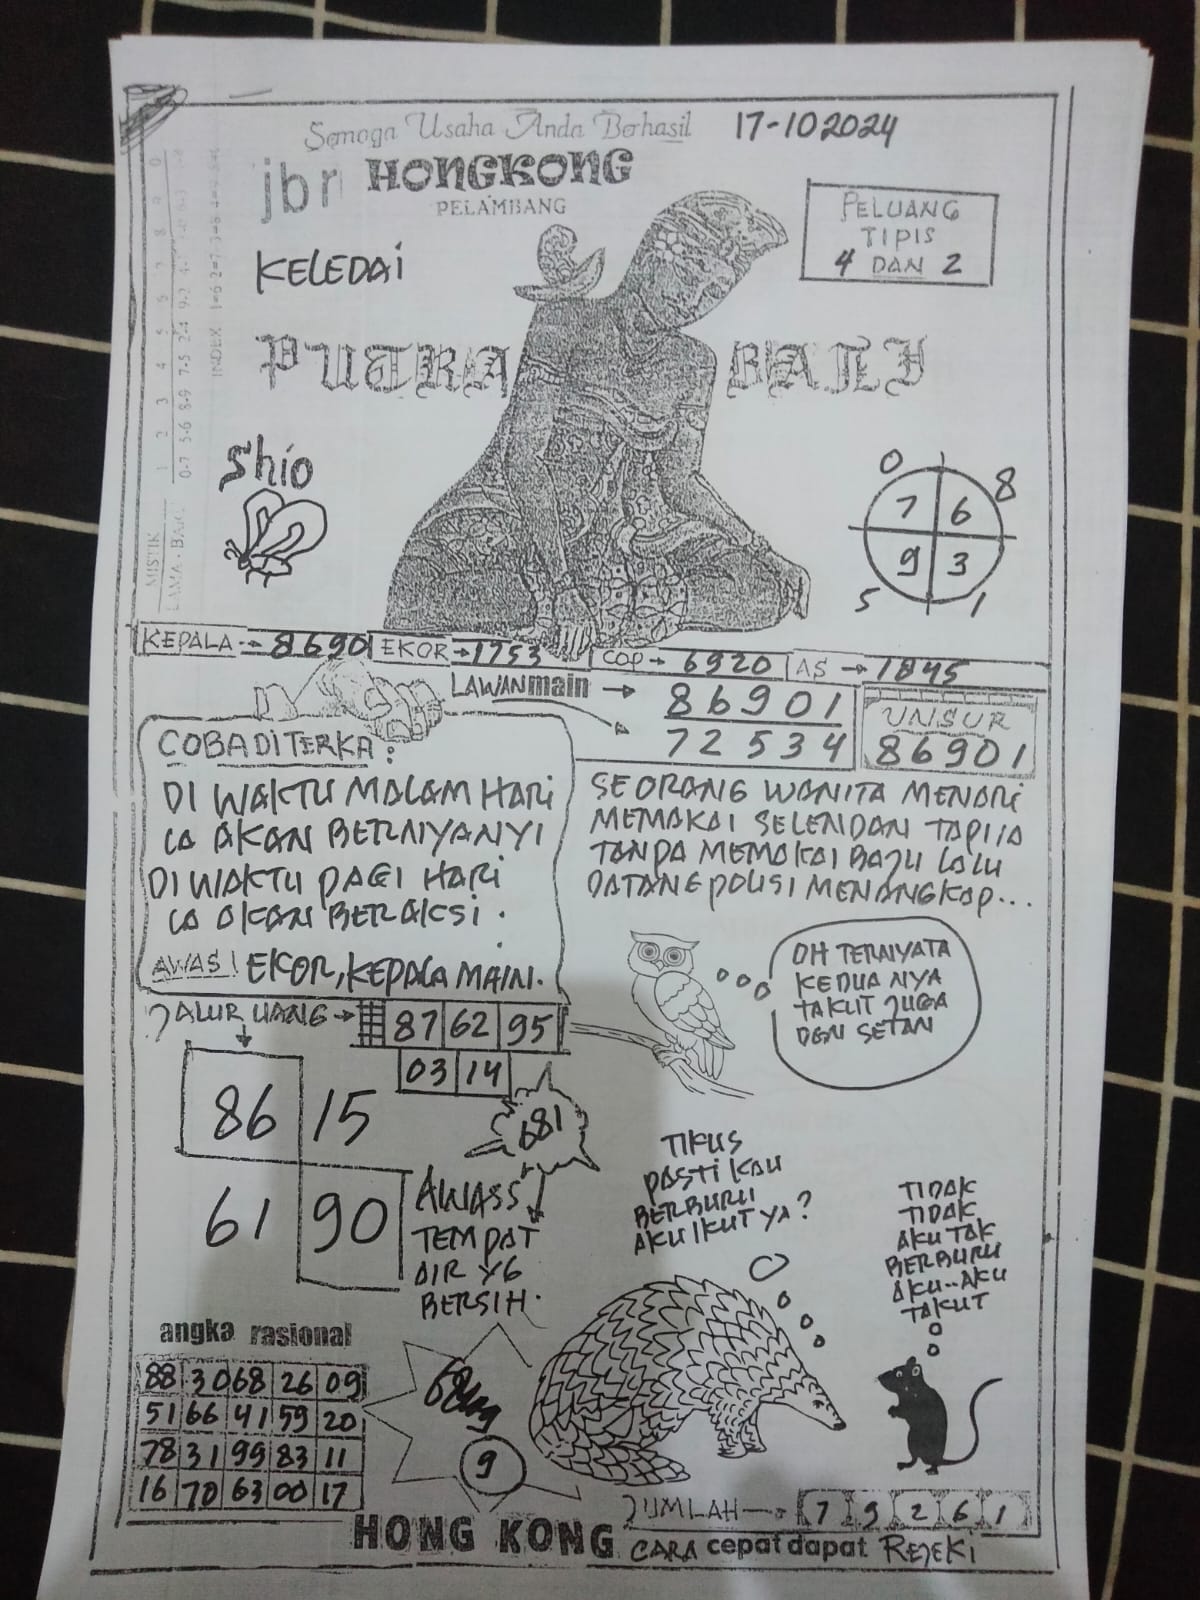 Semoga Usaha Anda Berhasil
17-10 2024
jbr HONGKONG
PELAMBANG
KELEDAI
PELUANG
TIPIS
4 DAN 2
PUTRA BALI
Shio
0 8
7 6
9 3
5 1
MISTIK
1 2 3 4 5
INDEX
KEPALA → 8690 EKOR → 1753 COP → 6920 AS → 1845
LAWAN main → 86901
72534
UNSUR
86901
COBA DITERKA:
DI WAKTU MALAM HARI
IA AKAN BERNYANYI
DI WAKTU PAGI HARI
IA AKAN BERAKSI.
AWAS! EKOR, KEPALA MAIN.
SEORANG WANITA MENARI
MEMAKAI SELENDAN TAPI IA
TANPA MEMAKAI BAJU LALU
DATANG POLISI MENANGKAP...
OH TERNYATA
KEDUA NYA
TAKUT JUGA
DGN SETAN
JALUR UANG → 87 62 95
03 14
86 15
61 90
681
AWASS
TEMPAT
AIR YG
BERSIH.
TIKUS
PASTI KAU
BERBURU
AKU IKUT YA?
TIDAK
TIDAK
AKU TAK
BERBURU
AKU..AKU
TAKUT
angka rasional
88 30 68 26 09
51 66 41 59 20
78 31 99 83 11
16 70 63 00 17
9
JUMLAH → 7 9 2 6 1
HONG KONG CARA cepat dapat REJEKI